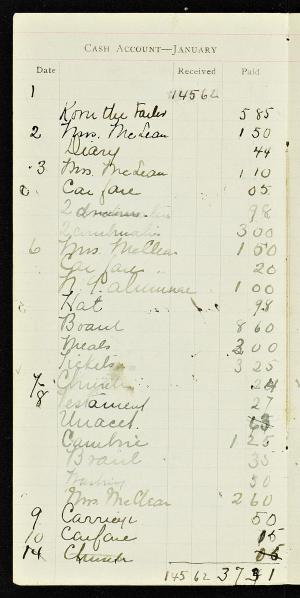 CASH ACCOUNT—JANUARY
Date Received Paid
1 145 62
Korn the Tailor 5 85
2 Mrs. McLean 1 50
Diary 44
3 Mrs. McLean 1 10
Carfare 05
2 98
2 3 00
6 Mrs. McClean 1 50
Car fare 20
N.Y. alumnae 1 00
Hat 98
Board 8 60
Meals 2 00
Tickets 3 25
7 Church 24
8 Testament 27
1 25
Braid 35
Washing 50
Mrs McClean 2 60
9 50
10 Carfare 15
14 Church 05
145 62 37 31